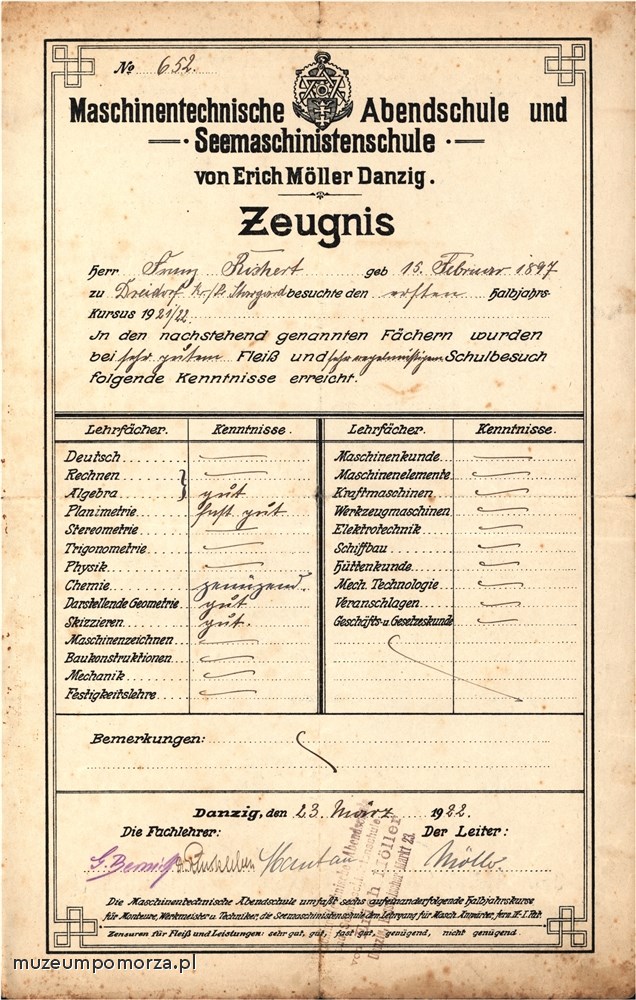 No 652.
Maschinentechnische Abendschule und
Seemaschinistenschule
von Erich Möller Danzig.
Zeugnis
Herr Franz geb 15. Februar 1897
zu Dreidorf Kr./Pr. Stargard besuchte den ersten Halbjahrs-
Kursus 1921/22.
In den nachstehend genannten Fächern wurden
bei sehr gutem Fleiß und sehr regelmäßigem Schulbesuch
folgende Kenntnisse erreicht.
Lehrfächer. Kenntnisse. Lehrfächer. Kenntnisse.
Deutsch Maschinenkunde
Rechnen Maschinenelemente
Algebra gut Kraftmaschinen
Planimetrie fast gut Werkzeugmaschinen
Stereometrie Elektrotechnik
Trigonometrie Schiffbau
Physik Hüttenkunde
Chemie genügend. Mech. Technologie
Darstellende Geometrie gut Veranschlagen
Skizzieren gut. Geschäfts-u. Gesetzeskunde
Maschinenzeichnen
Baukonstruktionen
Mechanik
Festigkeitslehre
Bemerkungen:
Danzig, den 23. März 1922.
Die Fachlehrer: Der Leiter:
Möller
Die Maschinentechnische Abendschule umfaßt sechs aufeinanderfolgende Halbjahrskurse
für Monteure, Werkmeister u. Techniker, die Seemaschinistenschule den Lehrgang für Masch.
Zensuren für Fleiß und Leistungen: sehr gut, gut, fast gut, genügend, nicht genügend.
muzeumpomorza.pl